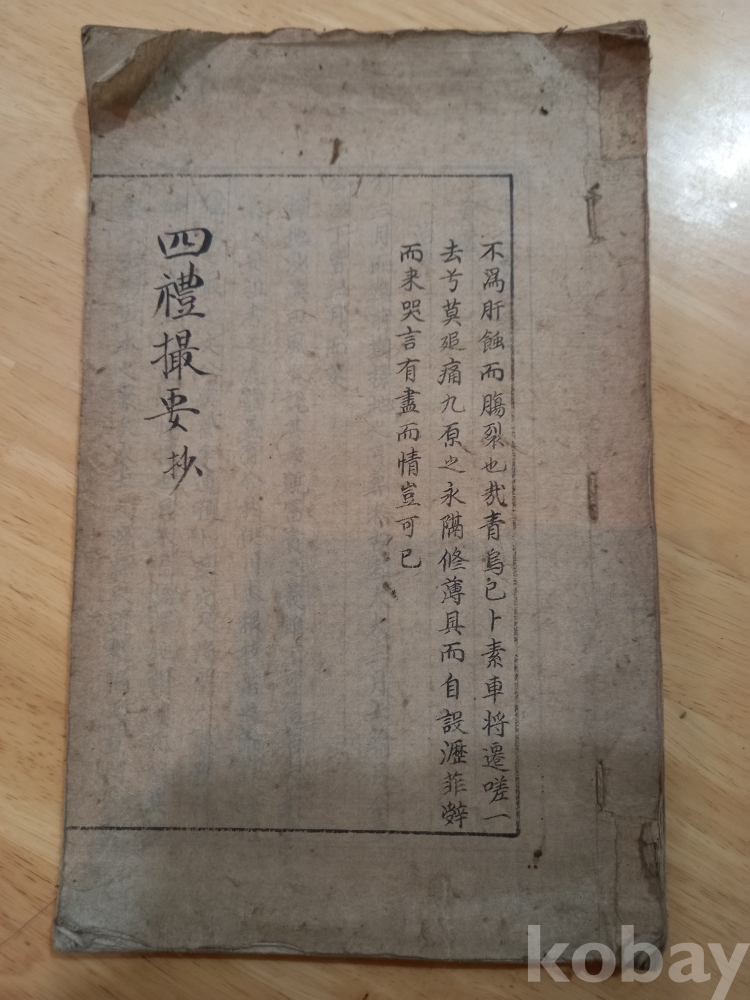 不爲肝蝕而膓裂也哉青烏已卜素車将遷嗟一
去兮莫追痛九原之永隔俻薄具而自設瀝菲辤
而来哭言有盡而情豈可已
四禮撮要抄
kobay